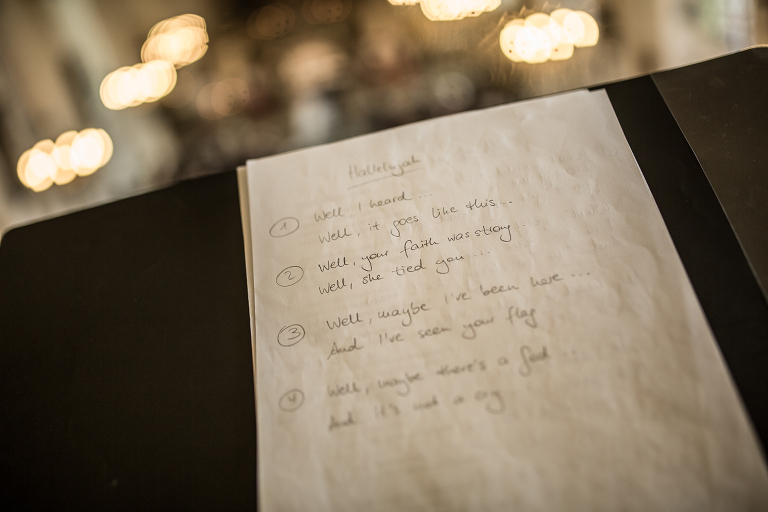 Hallelujah
1 Well I heard ...
Well, it goes like this...
2 Well, your faith was strong...
Well, she tied you ...
3 Well, maybe I've been here ...
And I've seen your flag
4 Well, maybe there's a God ...
And it's not a cry